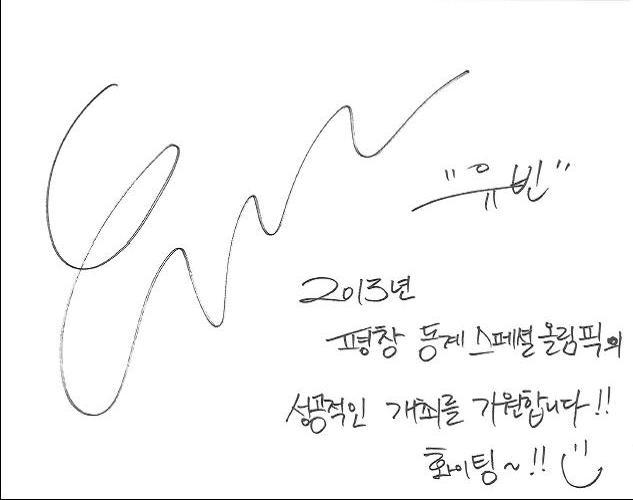 "유빈"
2013년
평창 동계 스페셜 올림픽의
성공적인 개최를 기원합니다!!
화이팅~!!